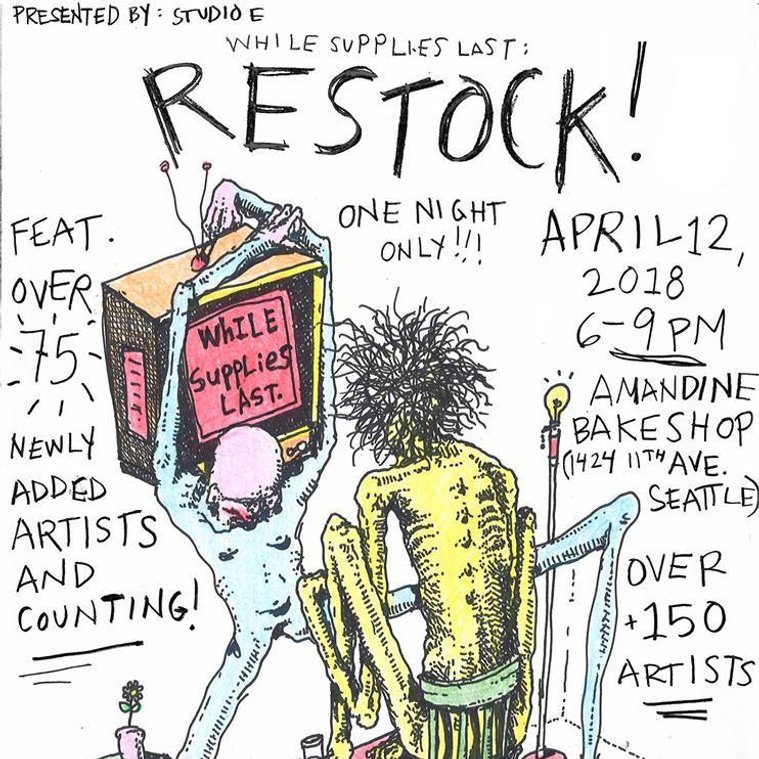 PRESENTED BY: STUDIO E
WHILE SUPPLIES LAST:
RESTOCK!
FEAT.
OVER
75
NEWLY
ADDED
ARTISTS
AND
COUNTING!
WHILE
SUPPLIES
LAST.
ONE NIGHT
ONLY!!!
APRIL 12,
2018
6-9 PM
AMANDINE
BAKESHOP
(1424 11TH AVE.
SEATTLE)
OVER
+150
ARTISTS